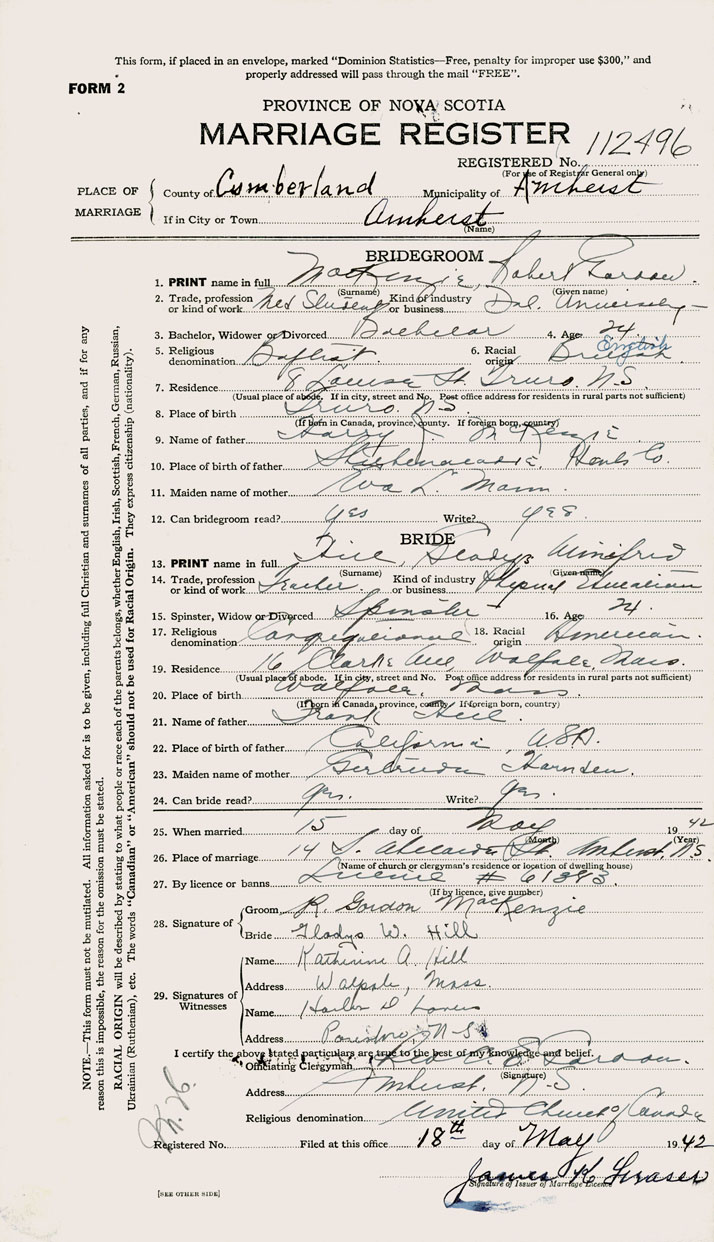 This form, if placed in an envelope, marked "Dominion Statistics—Free, penalty for improper use $300," and
properly addressed will pass through the mail "FREE".
FORM 2
PROVINCE OF NOVA SCOTIA
MARRIAGE REGISTER
REGISTERED No. 112496
(For use of Registrar General only)
PLACE OF MARRIAGE
County of Cumberland Municipality of Amherst
If in City or Town Amherst
(Name)
BRIDEGROOM
1. PRINT name in full MacKenzie, Robert Gordon
(Surname) (Given name)
2. Trade, profession or kind of work Med Student Kind of industry or business Dal. University
3. Bachelor, Widower or Divorced Bachelor 4. Age 24
5. Religious denomination Baptist 6. Racial origin British English
7. Residence 8 Louise St. Truro. N.S.
(Usual place of abode. If in city, street and No. Post office address for residents in rural parts not sufficient)
8. Place of birth Truro. N.S.
(If born in Canada, province, county. If foreign born, country)
9. Name of father Harry McKenzie
10. Place of birth of father Hants Co.
11. Maiden name of mother Eva L. Mann.
12. Can bridegroom read? yes Write? yes.
BRIDE
13. PRINT name in full Hill, Gladys Winifred
(Surname) (Given name)
14. Trade, profession or kind of work Teacher Kind of industry or business Physical Education
15. Spinster, Widow or Divorced Spinster 16. Age 24.
17. Religious denomination Congregational 18. Racial origin American.
19. Residence 16 Clarke Ave, Walpole, Mass.
(Usual place of abode. If in city, street and No. Post office address for residents in rural parts not sufficient)
20. Place of birth Walpole, Mass.
(If born in Canada, province, county If foreign born, country)
21. Name of father Frank Hill
22. Place of birth of father California, U.S.A.
23. Maiden name of mother Gertrude Harnden.
24. Can bride read? yes. Write? yes.
25. When married 15 day of May 1942
(Month) (Year)
26. Place of marriage 14 S. Adelaide St. Amherst, N.S.
(Name of church or clergyman's residence or location of dwelling house)
27. By licence or banns License # 61393.
(If by licence, give number)
28. Signature of
Groom R. Gordon MacKenzie
Bride Gladys W. Hill
29. Signatures of Witnesses
Name Katherine A. Hill
Address Walpole, Mass.
Name
Address Parrsboro, N-S
I certify the above stated particulars are true to the best of my knowledge and belief.
Officiating Clergyman Rev.
(Signature)
Address Amherst, N.S.
Religious denomination United Church of Canada
Registered No. Filed at this office 18th day of May 1942
James K Fraser
Signature of Issuer of Marriage Licence
[SEE OTHER SIDE]
NOTE.—This form must not be mutilated. All information asked for is to be given, including full Christian and surnames of all parties, and if for any
reason this is impossible, the reason for the omission must be stated.
RACIAL ORIGIN will be described by stating to what people or race each of the parents belongs, whether English, Irish, Scottish, French, German, Russian,
Ukrainian (Ruthenian), etc. The words "Canadian" or "American" should not be used for Racial Origin. They express citizenship (nationality).